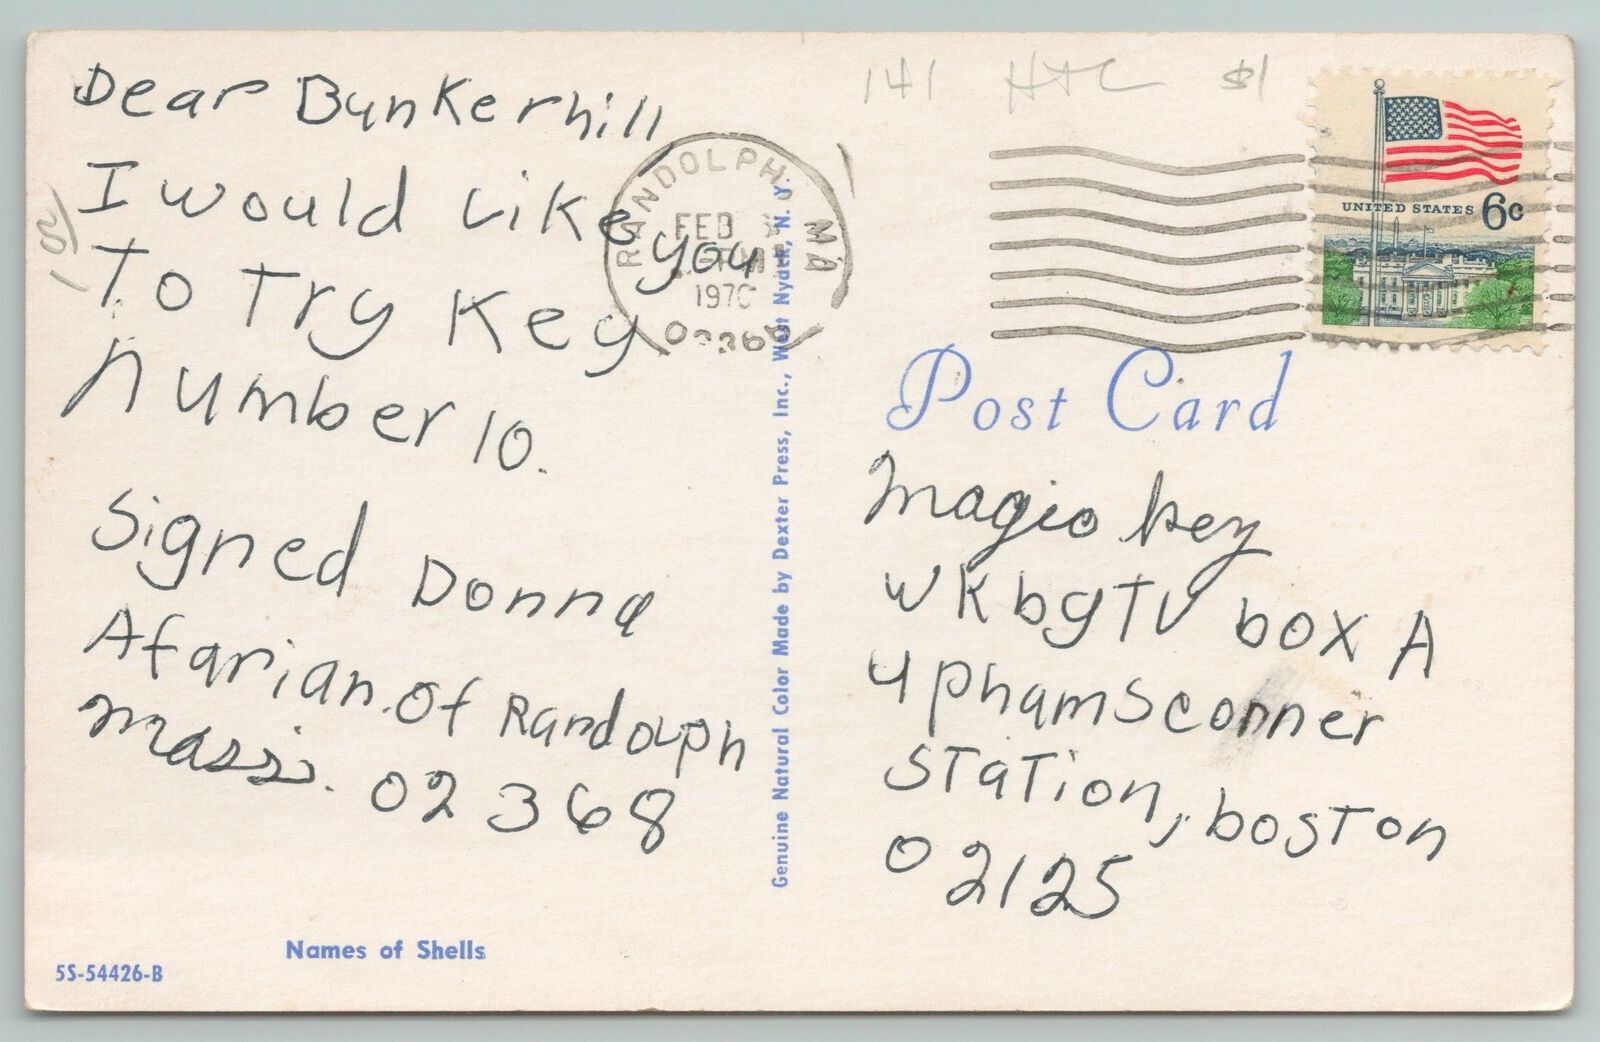 Dear Bunkerhill
I would Like you
To Try Key
number 10.
Signed Donna
Afarian. Of Randolph
mass. 02368
Names of Shells
5S-54426-B
Genuine Natural Color Made by Dexter Press, Inc., West Nyack, N. Y.
RANDOLPH MA
FEB
1970
02368
141 $1
UNITED STATES 6c
Post Card
Magic key
WKbgTV box A
uphamsconner
STaTion, bosTon
02125